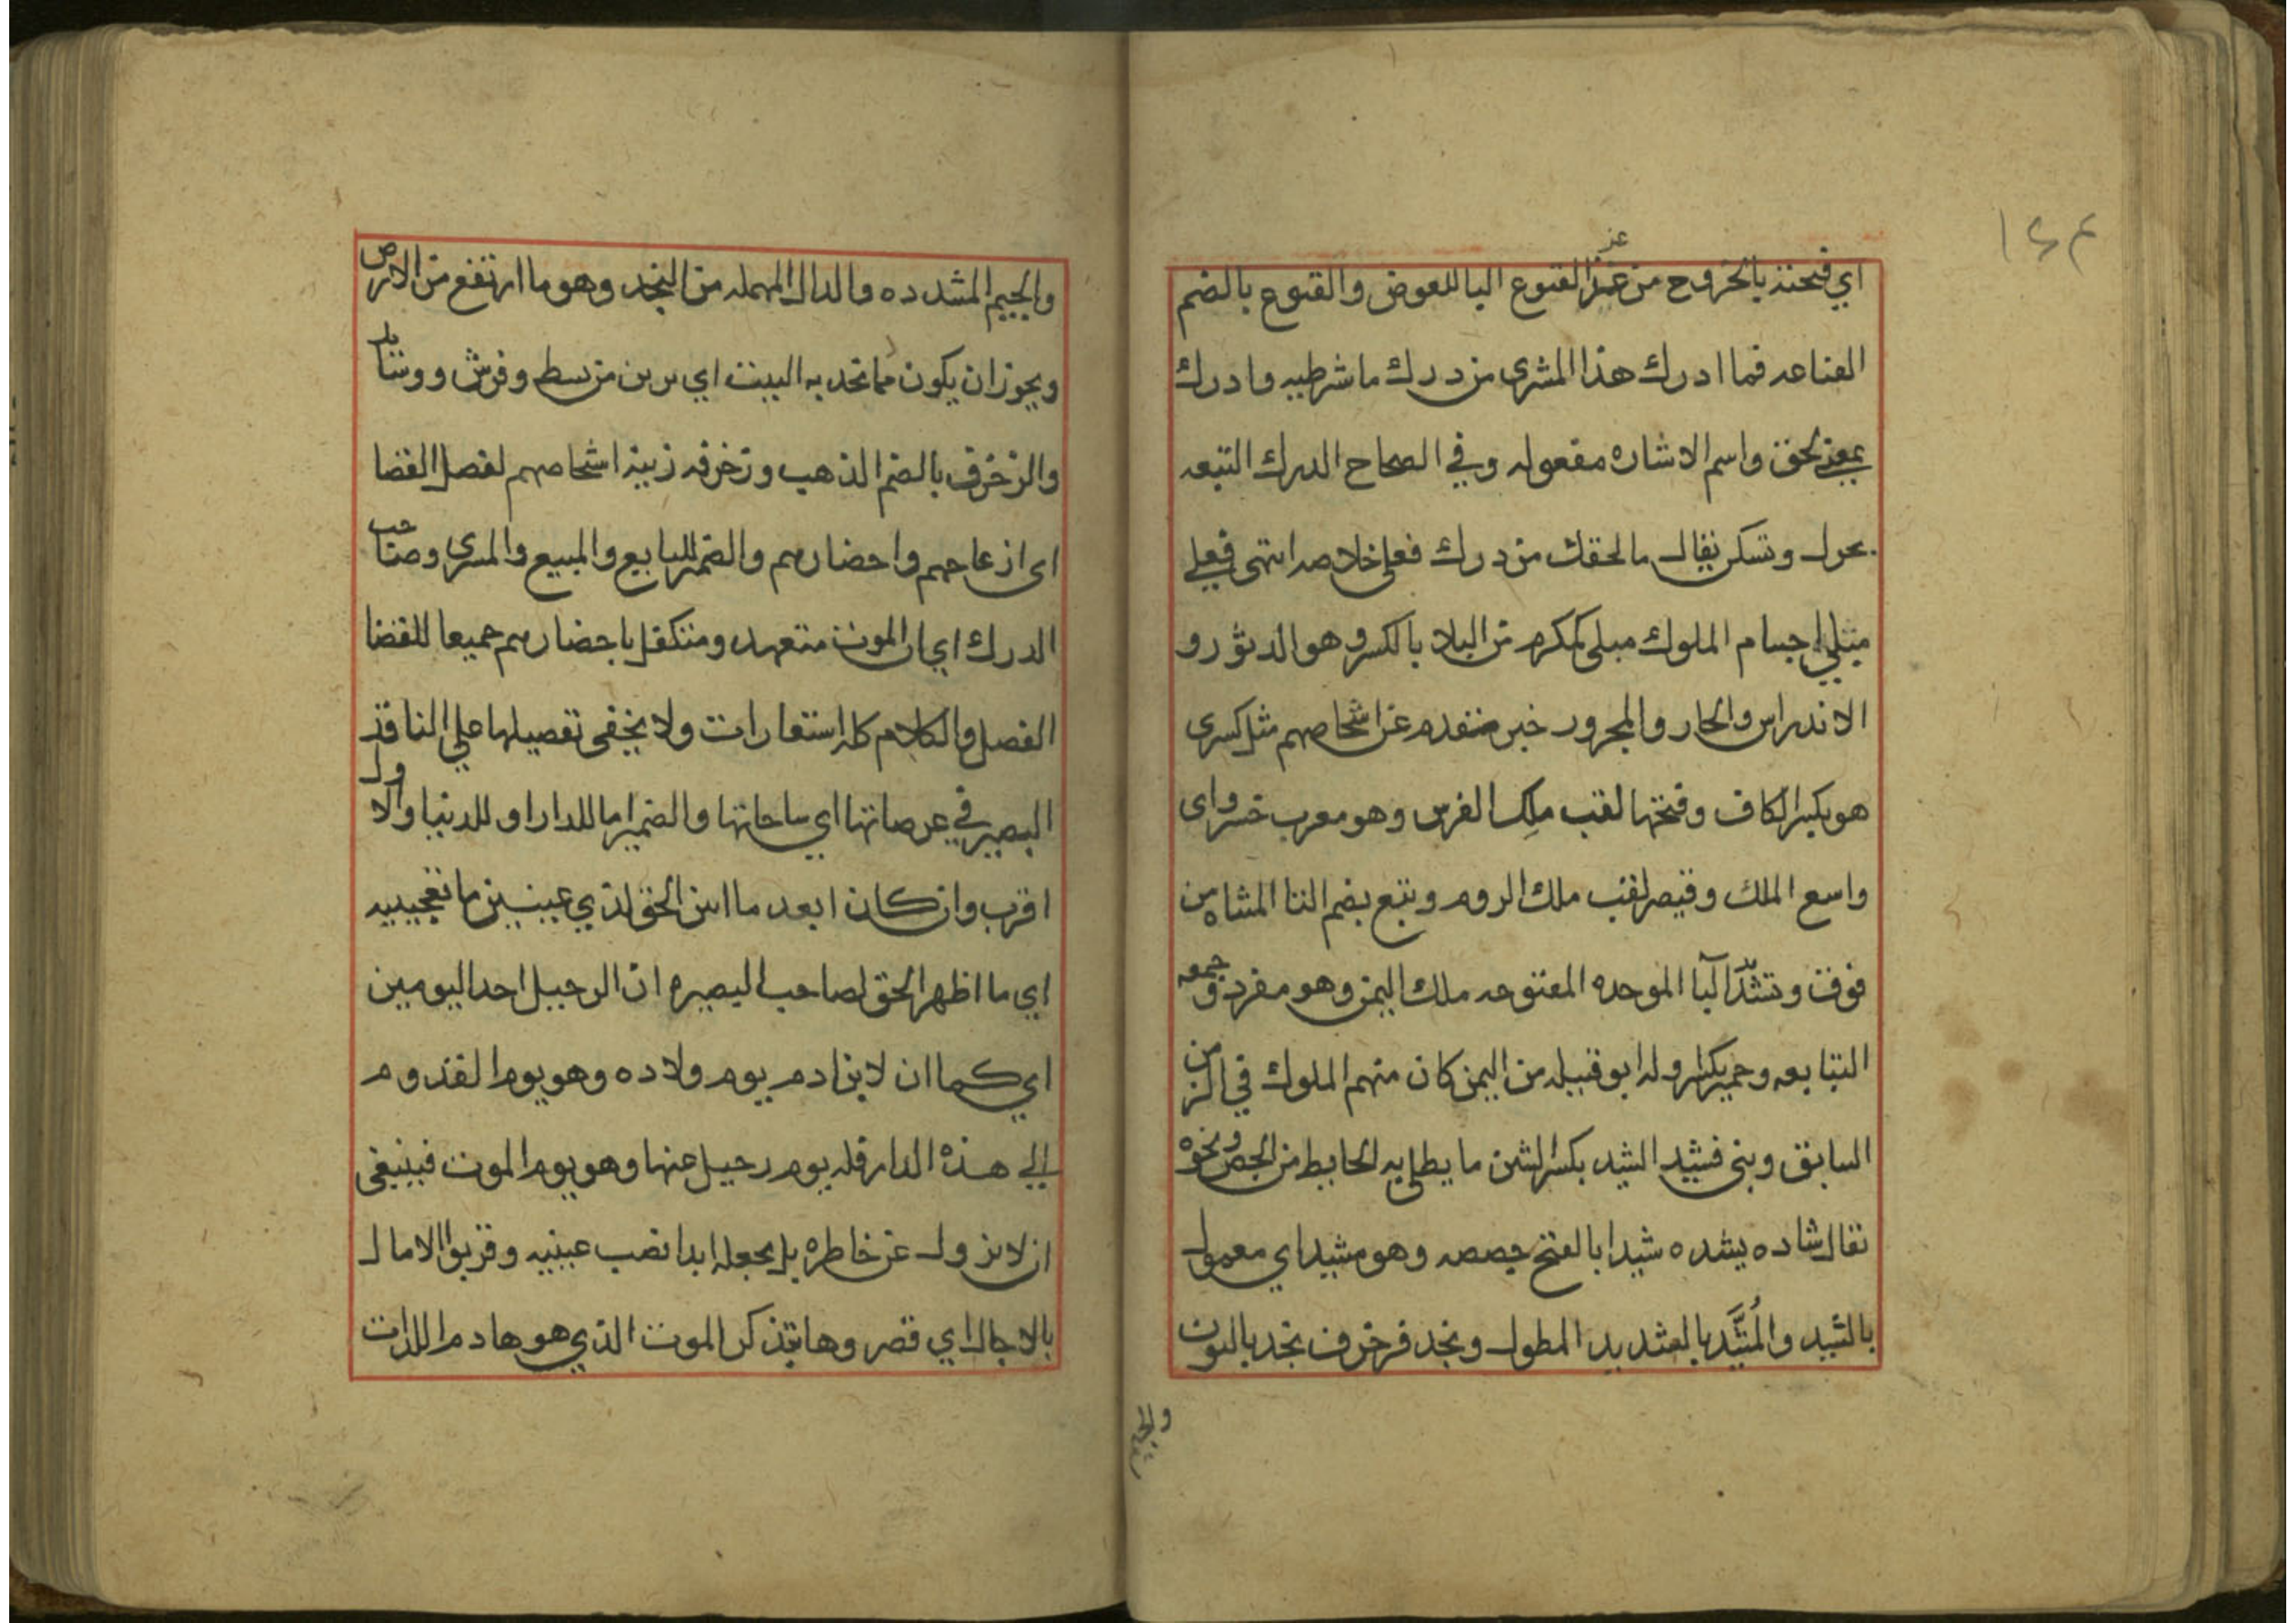 ١٤٣
عز
اي فتحته بالخروج من عز القنوع البا للعوض والقنوع بالضم
القناعه فما ادرك هذا المشرى من درك ما شرطيه وادرك
بمعنى لحق واسم الاشاره مفعوله وفي الصحاح الدرك التبعه
يحرك وتسكن يقال ما لحقك من درك فعلي خلاصه انتهى فعلي
مبلي اجسام الملوك مبلى كمكرم من البلاد بالكسر وهو الدثور و
الاندراس والجار والمجرور خبر متقدم عن اشخاصهم مثل كسرى
هو بكسر الكاف وفتحها لقب ملك الفرس وهو معرب خسرو اى
واسع الملك وقيصر لقب ملك الروم وتبع بضم التا المثناه من
فوق وتشد البا الموحده المفتوحه ملك اليمن وهو مفرد وجمعه
التبابعه وحمير بكسر اوله ابو قبيله من اليمن كان منهم الملوك في الزمن
السابق وبنى فشيد الشيد بكسر الشين ما يطلى به الحايط من الجص ونحوه
تقال شاده يشده شيدا بالفتح جصصه وهو مشيد اي معمول
بالشيد والمُشَيَّد بالتشديد المطول ونجد فزخرف نجد بالنون
والجيم المشدده والدال المهمله من النجد وهو ما ارتفع من الارض
ويجوز ان يكون مما نجد به البيت اي يزين من بسط وفرش ووسايد
والزخرف بالضم الذهب وزخرفه زينه اشخاصهم لفصل القضا
اى ازعاجهم واحضارهم والضمير للبايع والمبيع والمسرى وصاحب
الدرك اي ان الموت متعهد ومتكفل باحضارهم جميعا للقضا
الفصل والكلام كله استعارات ولا يخفى تفصيلها علي الناقد
البصير في عرصاتها اي ساحاتها والضمير اما للدار او للدنيا والاول
اقرب وان كان ابعد ما ابين الحق لذي عينين ما تعجبيه
اي ما اظهر الحق لصاحب البصيره ان الرحيل احد اليومين
اي كما ان لابن ادم يوم ولاده وهو يوم القدوم
الي هذه الدار فله يوم رحيل عنها وهو يوم الموت فينبغي
ان لا يزول عن خاطره بل يجعله ابدا نصب عينيه وقربوا الامال
بالاجال اي قصروها بتذكر الموت الذي هو هادم اللذات